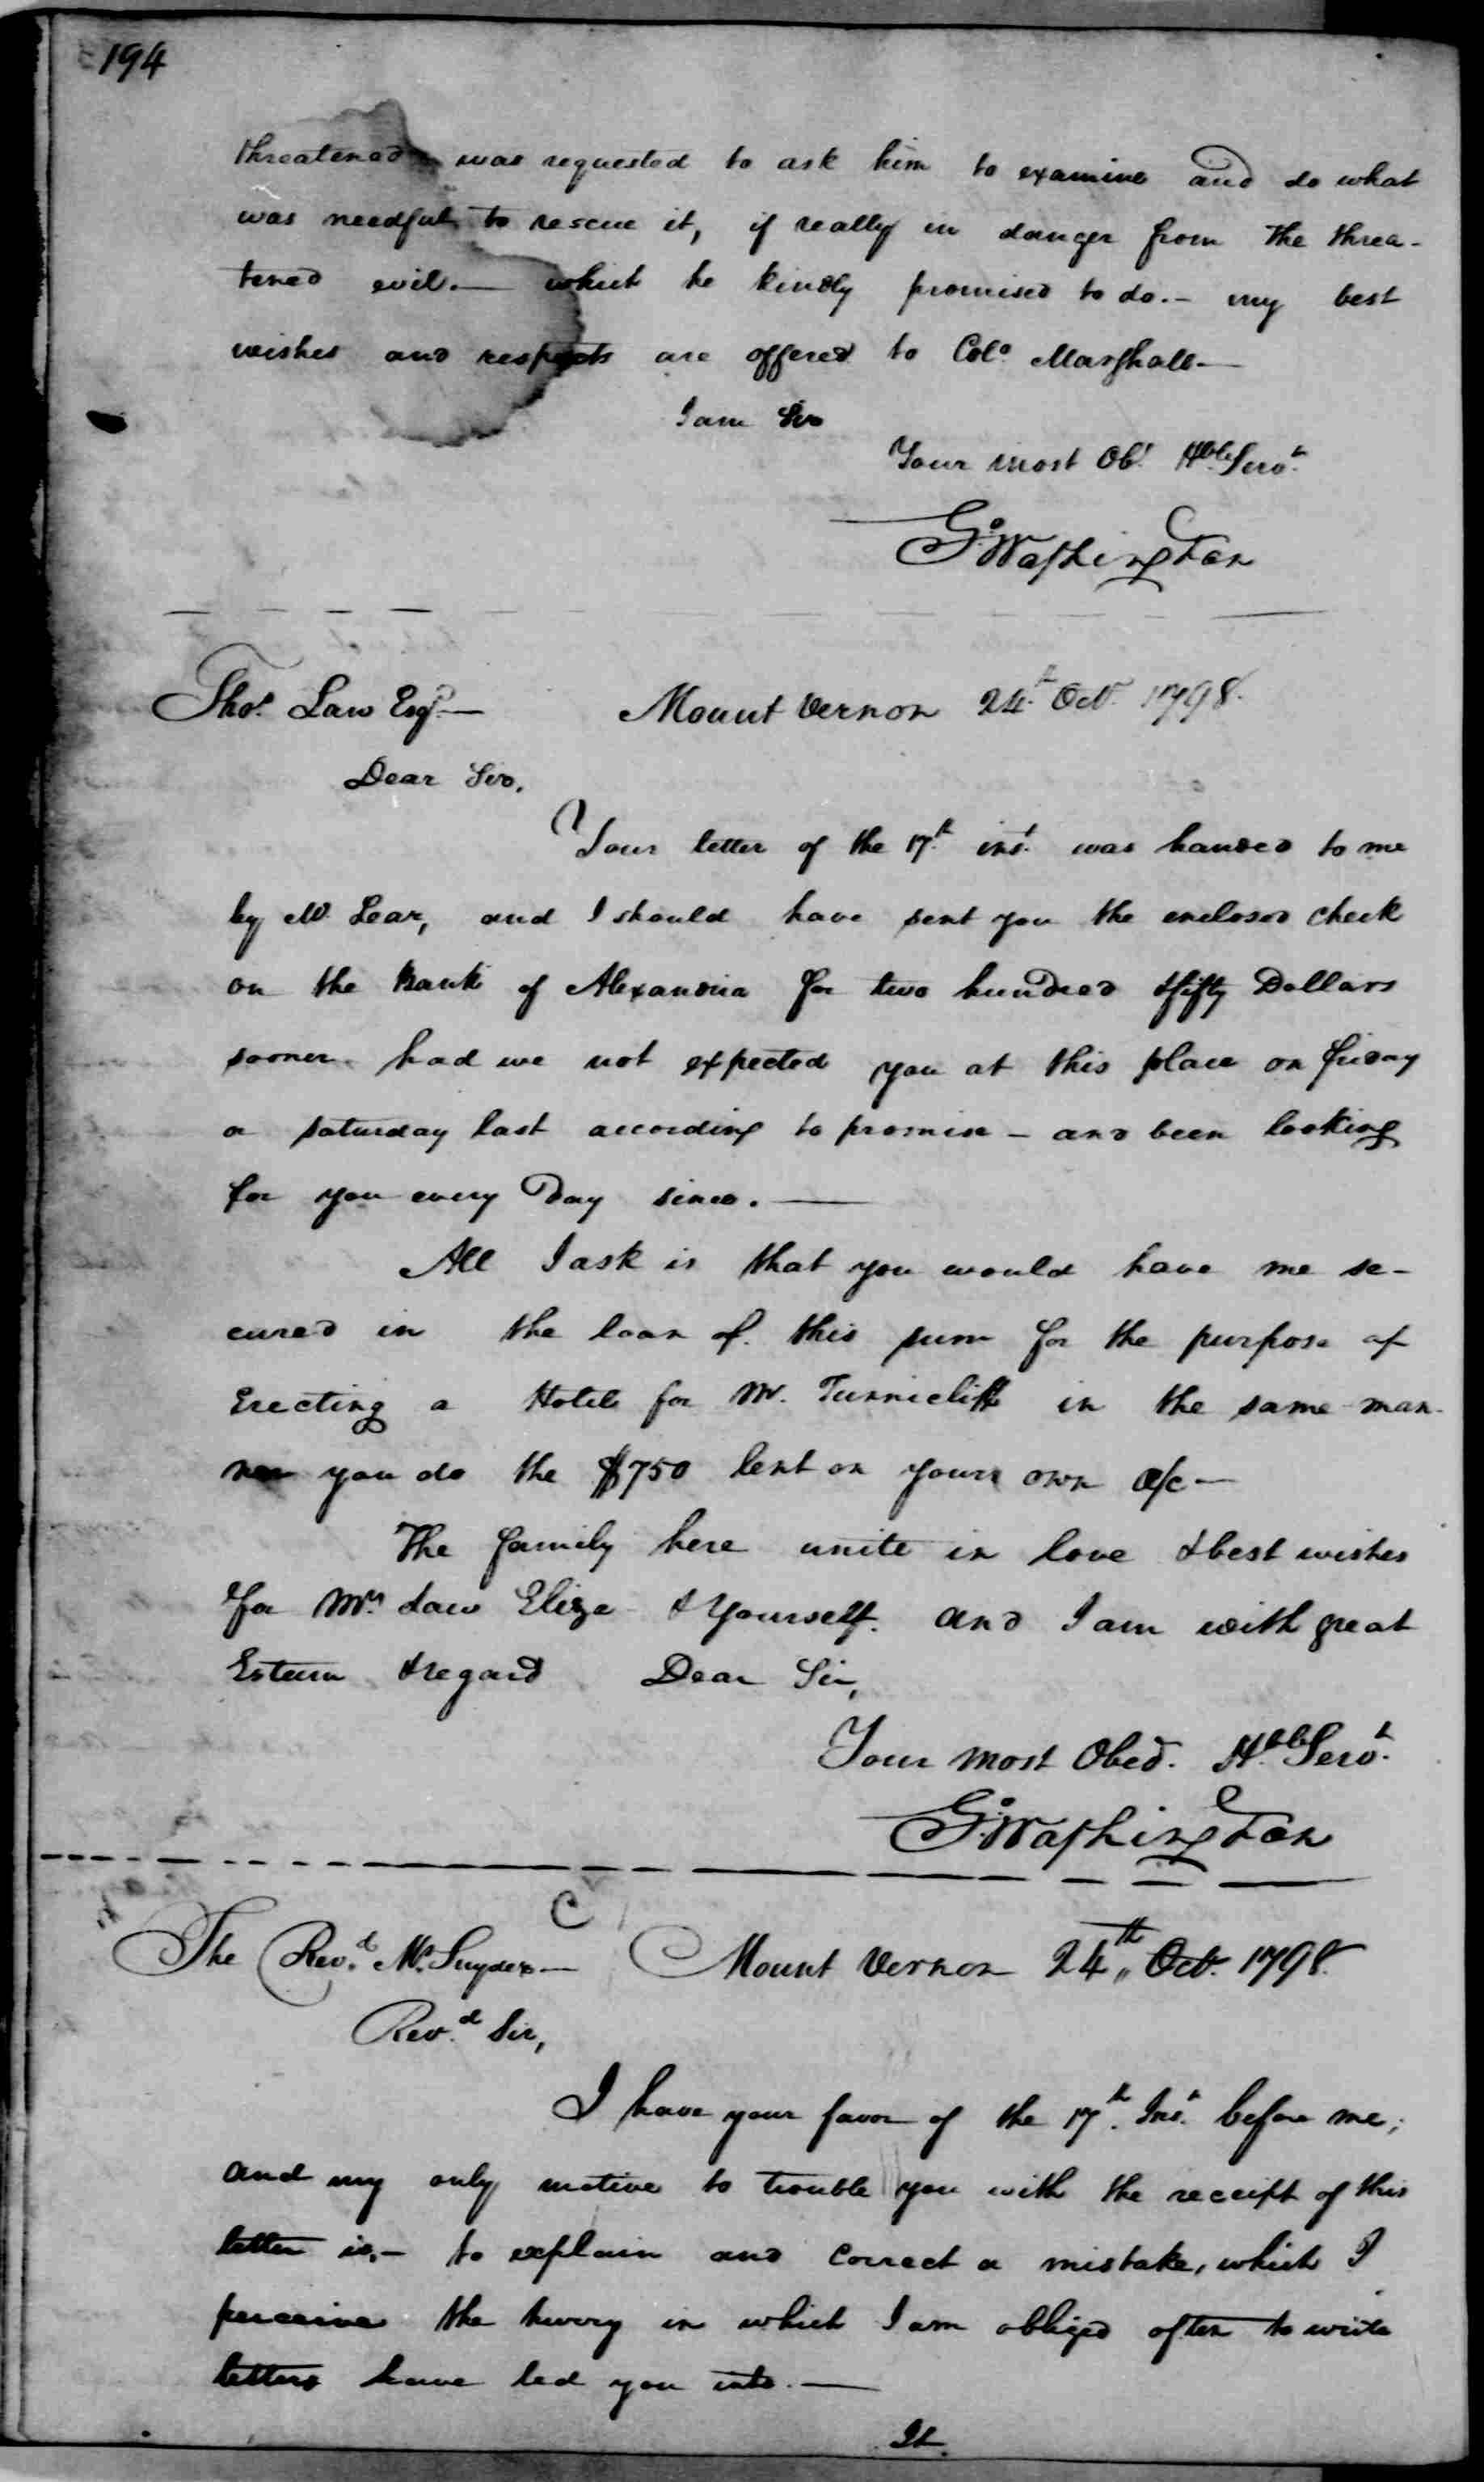 194
threatened was requested to ask him to examine and do what
was needful to rescue it, if really in danger from the threa-
tened evil.— which he kindly promised to do.— my best
wishes and respects are offered to Colo. Marshall—
I am Sir
Your most Obt. Hble Servt.
Go. Washington
Thos. Law Esqr.—
Mount Vernon 24th. Octr. 1798.
Dear Sir,
Your letter of the 17th. inst. was handed to me
by Mr. Lear, and I should have sent you the enclosed check
on the Bank of Alexandria for two hundred & fifty Dollars
sooner had we not expected you at this place on friday
or saturday last according to promise — and been looking
for you every Day since.—
All I ask is that you would have me se-
cured in the loan of this sum for the purpose of
Erecting a Hotel for Mr. Tunnicliff in the same man-
ner you do the $750 lent on your own a/c—
The family here unite in love & best wishes
for Mrs. Law Eliza & Yourself. and I am with great
Esteem & regard Dear Sir,
Your most Obed. Hble Servt.
Go. Washington
The Revd. Mr. Snyder—
Mount Vernon 24th,, Octr. 1798.
Revd. Sir,
I have your favor of the 17th. Inst. before me;
and my only motive to trouble you with the receipt of this
letter is,— to explain and correct a mistake, which I
perceive the hurry in which I am obliged often to write
letters have led you into.—
It